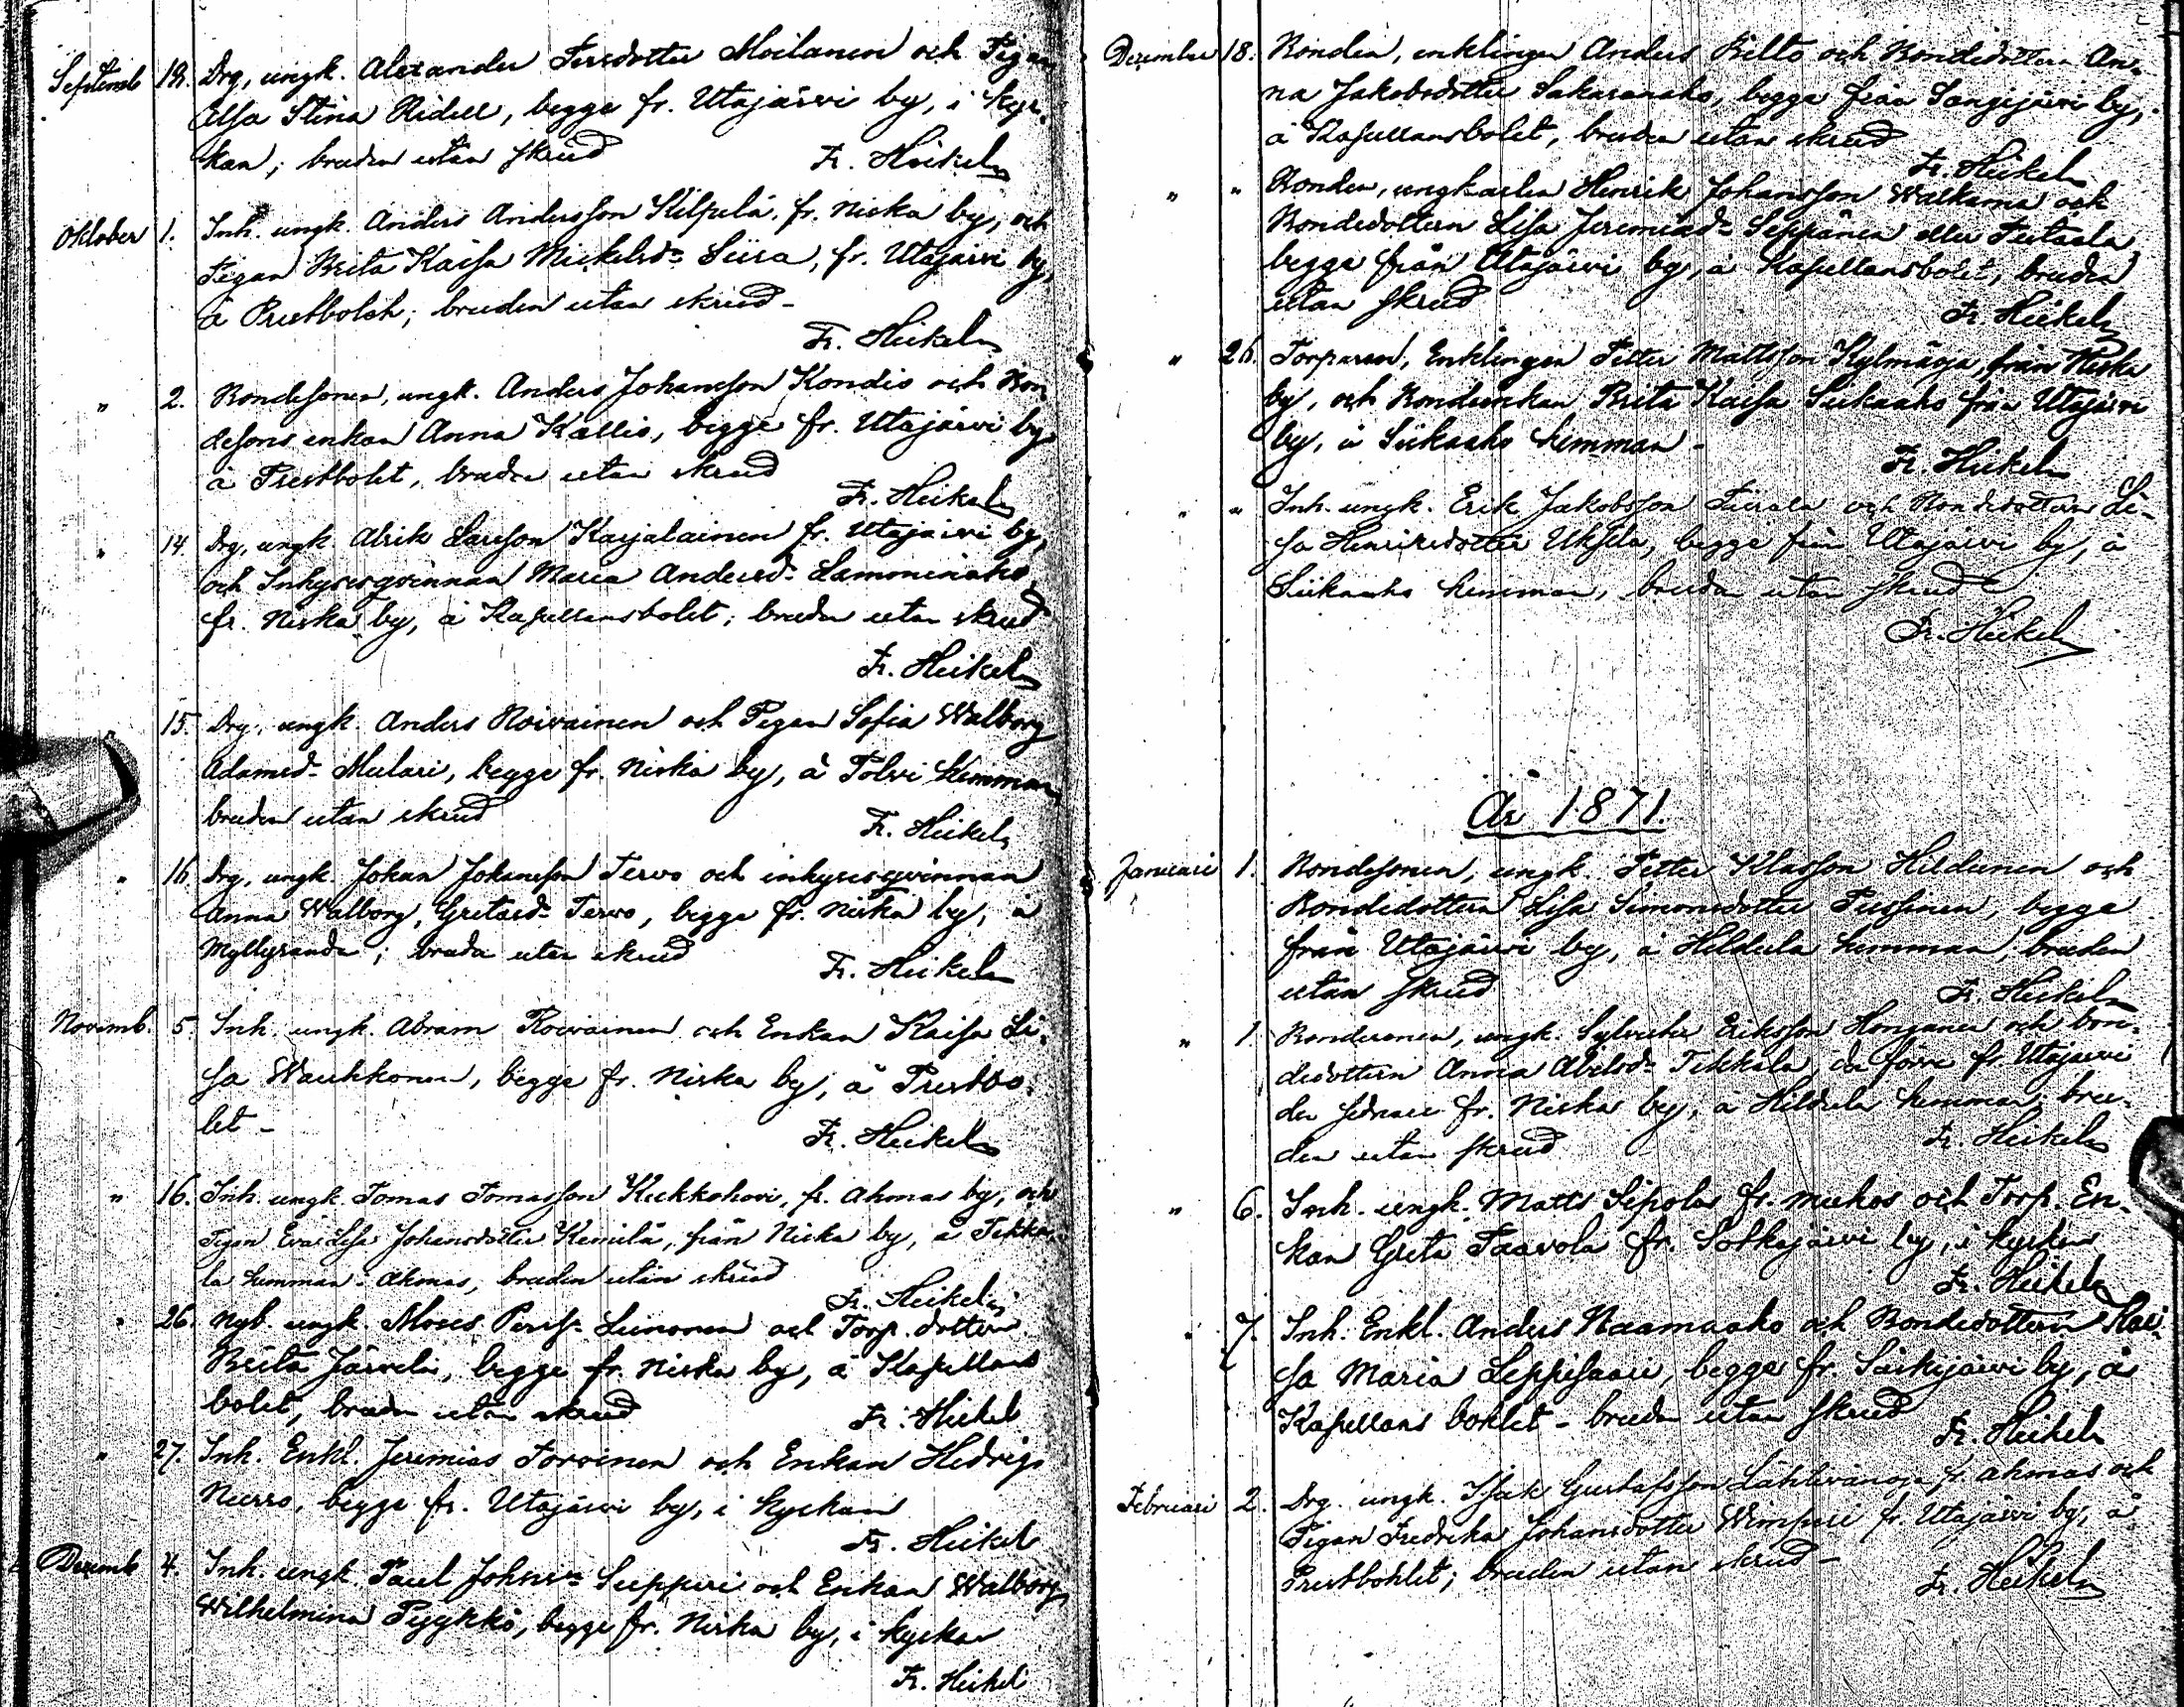 Septemb 18. Drg, ungk. Alexander Persdotter Moilanen och Pigan
Elsa Stina Ridell, begge fr. Utajärvi by, i kyr-
kan; bruden utan skrud
Fr. Heikel
Oktober 1. Inh. ungk. Anders Andersson Kilpelä, fr. Niska by, och
Pigan Brita Kaisa Mickelsd. Siira, fr. Utajärvi by,
å Prestbolet; bruden utan skrud -
Fr. Heikel
" 2. Bondesonen, ungk. Anders Johansson Kondio och Bon-
desons enkan Anna Kallio, begge fr. Utajärvi by
å Prestbolet, bruden utan skrud
Fr. Heikel
" 14. Drg, ungk Alrik Larsson Karjalainen fr. Utajärvi by,
och Inhysesqvinnan Maria Andersd. Lamminaho
fr. Niska by, å Kapellansbolet; bruden utan skrud
Fr. Heikel
" 15. Drg, ungk. Anders Roivainen och Pigan Sofia Walborg
Adamsd. Mulari, begge fr. Niska by, å Tolvi hemman
bruden utan skrud
Fr. Heikel
" 16. Drg, ungk. Johan Johansson Tervo och inhysesqvinnan
Anna Walborg, Gretasd. Tervo, begge fr. Niska by, å
Myllyranda; bruden utan skrud
Fr. Heikel
Novemb. 5. Inh. ungk. Abram Roivainen och Enkan Kaisa Li-
sa Waukkonen, begge fr. Niska by, å Prestbo-
let -
Fr. Heikel
" 16. Inh. ungk. Tomas Tomasson Kukkohovi, fr. Ahmas by, och
Pigan Eva Lisa Johansdotter Kemilä, från Niska by, å Tekka-
la hemman i Ahmas, bruden utan skrud
Fr. Heikel
" 26. Nyb. ungk. Moses Perss. Leinonen och Torp. dottern
Brita Järvelä, begge fr. Niska by, å Kapellans
bolet, bruden utan skrud
Fr. Heikel
" 27. Inh. Enkl. Jeremias Torvinen och Enkan Hedvig
Nurro, begge fr. Utajärvi by, i kyrkan
Fr. Heikel
Decemb 4. Inh. ungk. Paul Johans. Seppäri och Enkan Walborg
Wilhelmina Pyykkö, begge fr. Niska by, i kyrkan
Fr. Heikel
December 18. Bonden, enklingen Anders Kilto och Bondedottern An-
na Jakobsdotter Sakaranaho, begge från Sangijärvi by,
å Kapellansbolet, bruden utan skrud
Fr. Heikel
" " Bonden, ungkarlen Henrik Johansson Walkama och
Bondedottern Lisa Jeremiasd. Seppänen eller Tertsala
begge från Utajärvi by, å Kapellansbolet, bruden
utan skrud
Fr. Heikel
" 26. Torparen, Enklingen Petter Mattsson Kylmäoja, från Niska
by, och Bondeenkan Brita Kaisa Siikaaho från Utajärvi
by, å Siikaaho hemman -
Fr. Heikel
" " Inh. ungk. Erik Jakobsson Piirala och Bondedottern Li-
sa Henriksdotter Uksila, begge från Utajärvi by, å
Siikaaho hemman, bruden utan skrud
Fr. Heikel
År 1871.
Januari 1. Bondesonen, ungk. Petter Klasson Hildunen och
Bondedottern Lisa Simonsdotter Tussinen, begge
från Utajärvi by, å Hildula hemman, bruden
utan skrud
Fr. Heikel
" 1. Bondesonen, ungk. Sylvester Eriksson Honganen och bon-
dedottern Anna Abelsd. Tekkala, de förre fr. Utajärvi
den sednare fr. Niska by, å Hildula hemman; bru-
den utan skrud
Fr. Heikel
" 6. Inh. ungk. Matts Sipola fr. Muhos och Torp. En-
kan Greta Taavola fr. Sotkajärvi by, i kyrkan
Fr. Heikel
" 7. Inh. Enkl. Anders Naamaaho och Bondedottern Kai-
sa Maria Leppisaari, begge fr. Särkijärvi by, å
Kapellans bohlet - bruden utan skrud
Fr. Heikel
Februari 2. Drg. ungk. Isak Gustafsson Lähtevänoja fr. Ahmas och
Pigan Fredrika Johansdotter Wimpari fr. Utajärvi by, å
Prestbohlet; bruden utan skrud -
Fr. Heikel